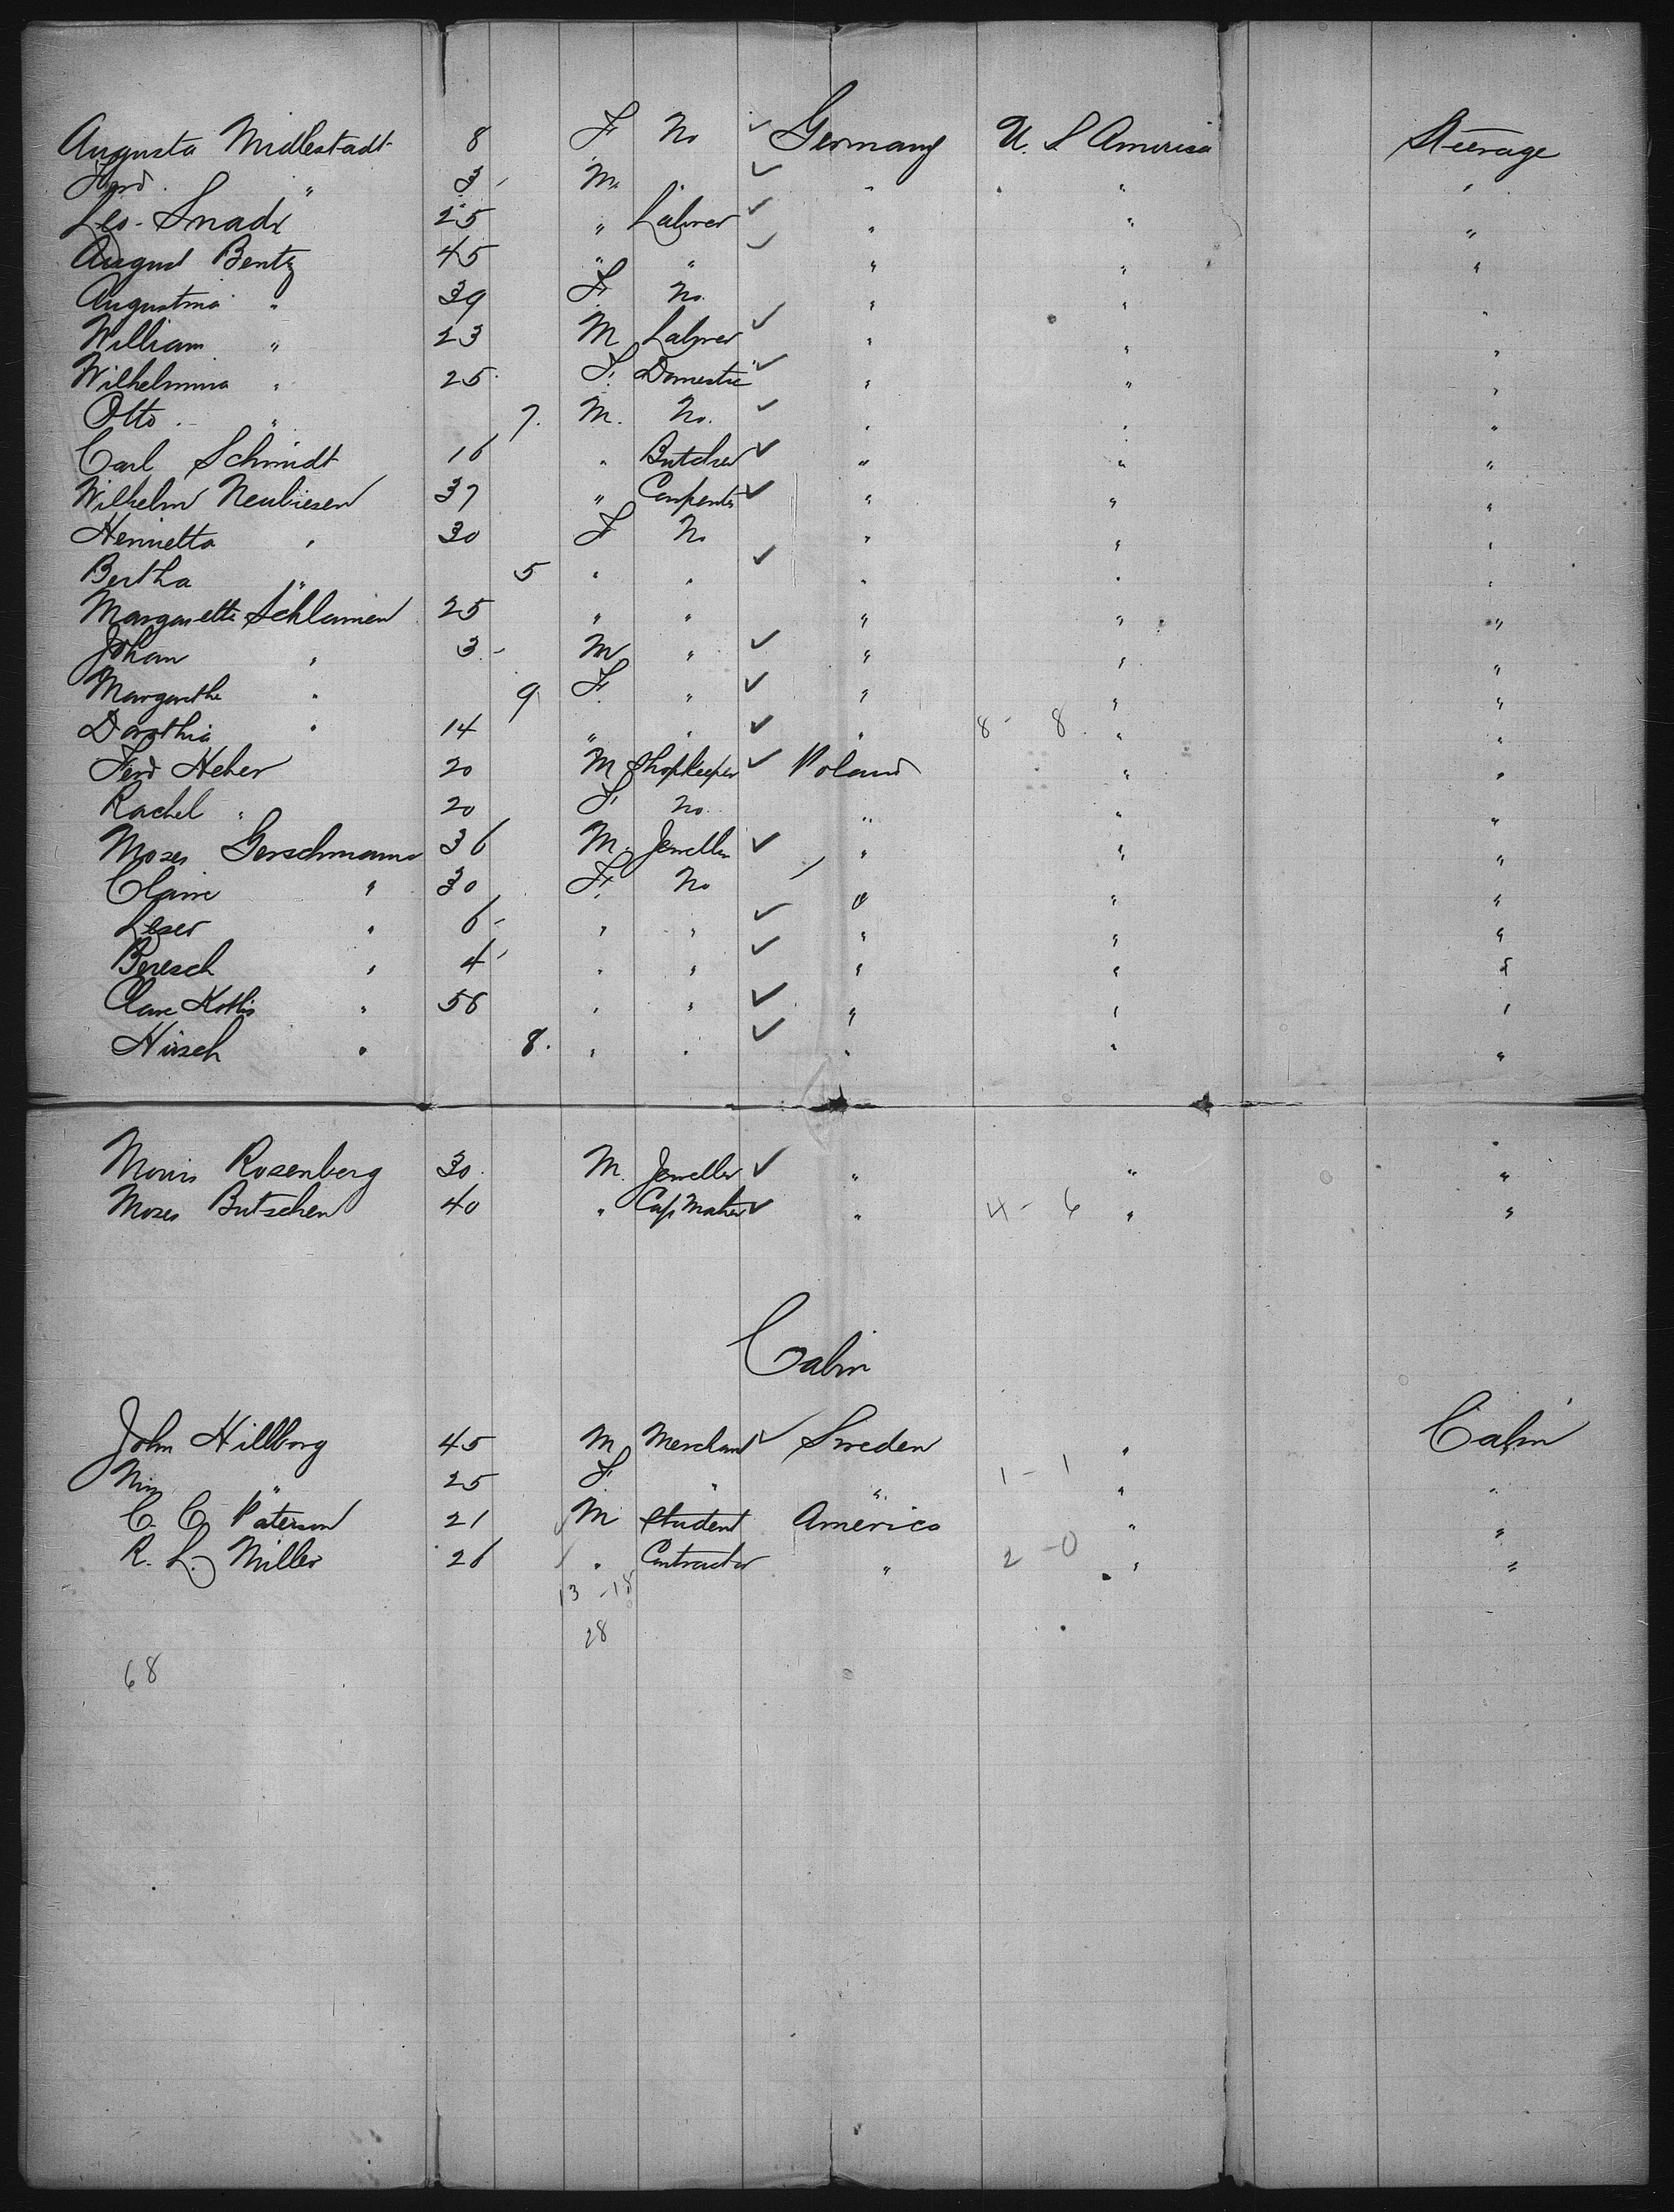 Augusta Midlestadt 8 F No ✓ Germany U. S America Steerage
Ferd. " 3 - M. " ✓ " " "
Leo. Snadx 25 " Labrer ✓ " " "
August Bentz 45 " " ✓ " " "
Augustina " 39 F. No. " " "
William " 23 M Labrer ✓ " " "
Wilhelmina " 25 F. Domestic ✓ " " "
Otto. " 7. M. No. ✓ " " "
Carl Schmidt 16 " Butcher ✓ " " "
Wilhelm Neubiesen 37 " Carpenter ✓ " " "
Henrietta " 30 F No " " "
Bertha " 5 " " ✓ " " "
Margarette Schlamen 25 " " " " "
Johan " 3. - M " ✓ " " "
Margarethe " 9 F. " ✓ " " "
Dorothia " 14 " " ✓ " 8 - 8. " "
Ferd Heher 20 M Shopkeeper ✓ Poland " "
Rachel " 20 F. No. " " "
Moses Gerschmann 36 M. Jeweller ✓ " " "
Claire " 30 F. No " " "
Leser " 6 - " " ✓ " " "
Beresch " 4 - " " ✓ " " "
Clare " 56 " " ✓ " " "
Hirsch " 8. " " ✓ " " "
"
Morris Rosenberg 30. M. Jeweller ✓ " " "
Moses Butschen 40 " Cap Maker ✓ " 4 - 6 " "
Cabin
John Hillborg 45 M Merchant ✓ Sweden " Cabin
" 25 F. " " 1 - 1 " "
C. C. Paterson 21 M Student America " "
R. L. Miller 26 " Contractor " 2 - 0 " "
13 - 15
28
68